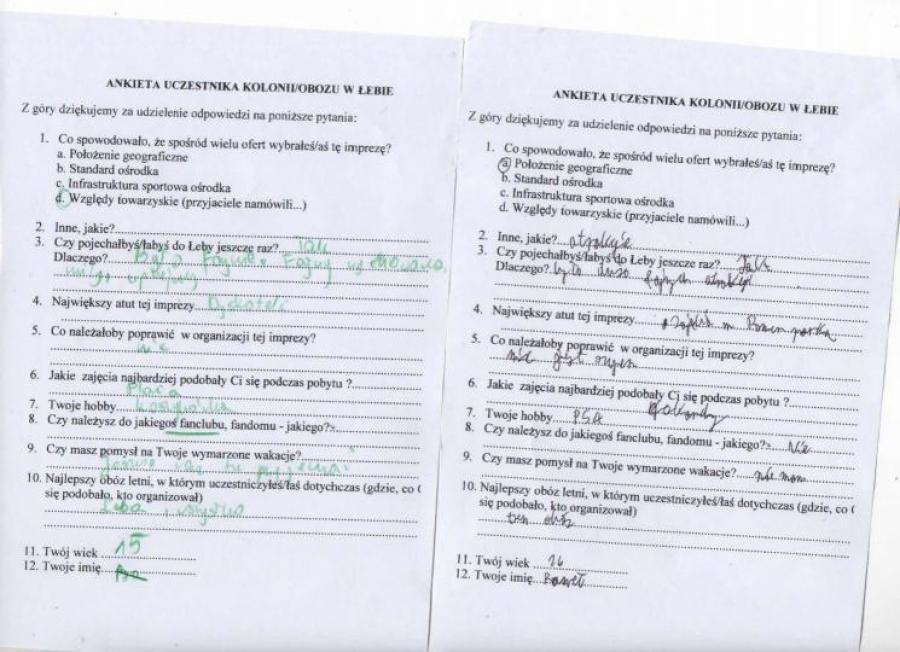 ANKIETA UCZESTNIKA KOLONII/OBOZU W ŁEBIE
Z góry dziękujemy za udzielenie odpowiedzi na poniższe pytania:
1. Co spowodowało, że spośród wielu ofert wybrałeś/aś tę imprezę?
a. Położenie geograficzne
b. Standard ośrodka
c. Infrastruktura sportowa ośrodka
d. Względy towarzyskie (przyjaciele namówili...)
2. Inne, jakie?
3. Czy pojechałbyś/łabyś do Łeby jeszcze raz? Tak
Dlaczego? Było fajnie. Fajny
4. Największy atut tej imprezy Dyskoteki
5. Co należałoby poprawić w organizacji tej imprezy?
6. Jakie zajęcia najbardziej podobały Ci się podczas pobytu ?
Plaża
7. Twoje hobby Koszykówka
8. Czy należysz do jakiegoś fanclubu, fandomu - jakiego?
9. Czy masz pomysł na Twoje wymarzone wakacje?
10. Najlepszy obóz letni, w którym uczestniczyłeś/łaś dotychczas (gdzie, co (
się podobało, kto organizował)
Łeba i
11. Twój wiek 15
12. Twoje imię
ANKIETA UCZESTNIKA KOLONII/OBOZU W ŁEBIE
Z góry dziękujemy za udzielenie odpowiedzi na poniższe pytania:
1. Co spowodowało, że spośród wielu ofert wybrałeś/aś tę imprezę?
a. Położenie geograficzne
b. Standard ośrodka
c. Infrastruktura sportowa ośrodka
d. Względy towarzyskie (przyjaciele namówili...)
2. Inne, jakie? atrakcje
3. Czy pojechałbyś/łabyś do Łeby jeszcze raz? Tak
Dlaczego? było dużo fajnych atrakcji
4. Największy atut tej imprezy
5. Co należałoby poprawić w organizacji tej imprezy?
jest
6. Jakie zajęcia najbardziej podobały Ci się podczas pobytu ?
7. Twoje hobby
8. Czy należysz do jakiegoś fanclubu, fandomu - jakiego? Nie
9. Czy masz pomysł na Twoje wymarzone wakacje? nie mam
10. Najlepszy obóz letni, w którym uczestniczyłeś/łaś dotychczas (gdzie, co (
się podobało, kto organizował)
ten obóz
11. Twój wiek 16
12. Twoje imię Paweł